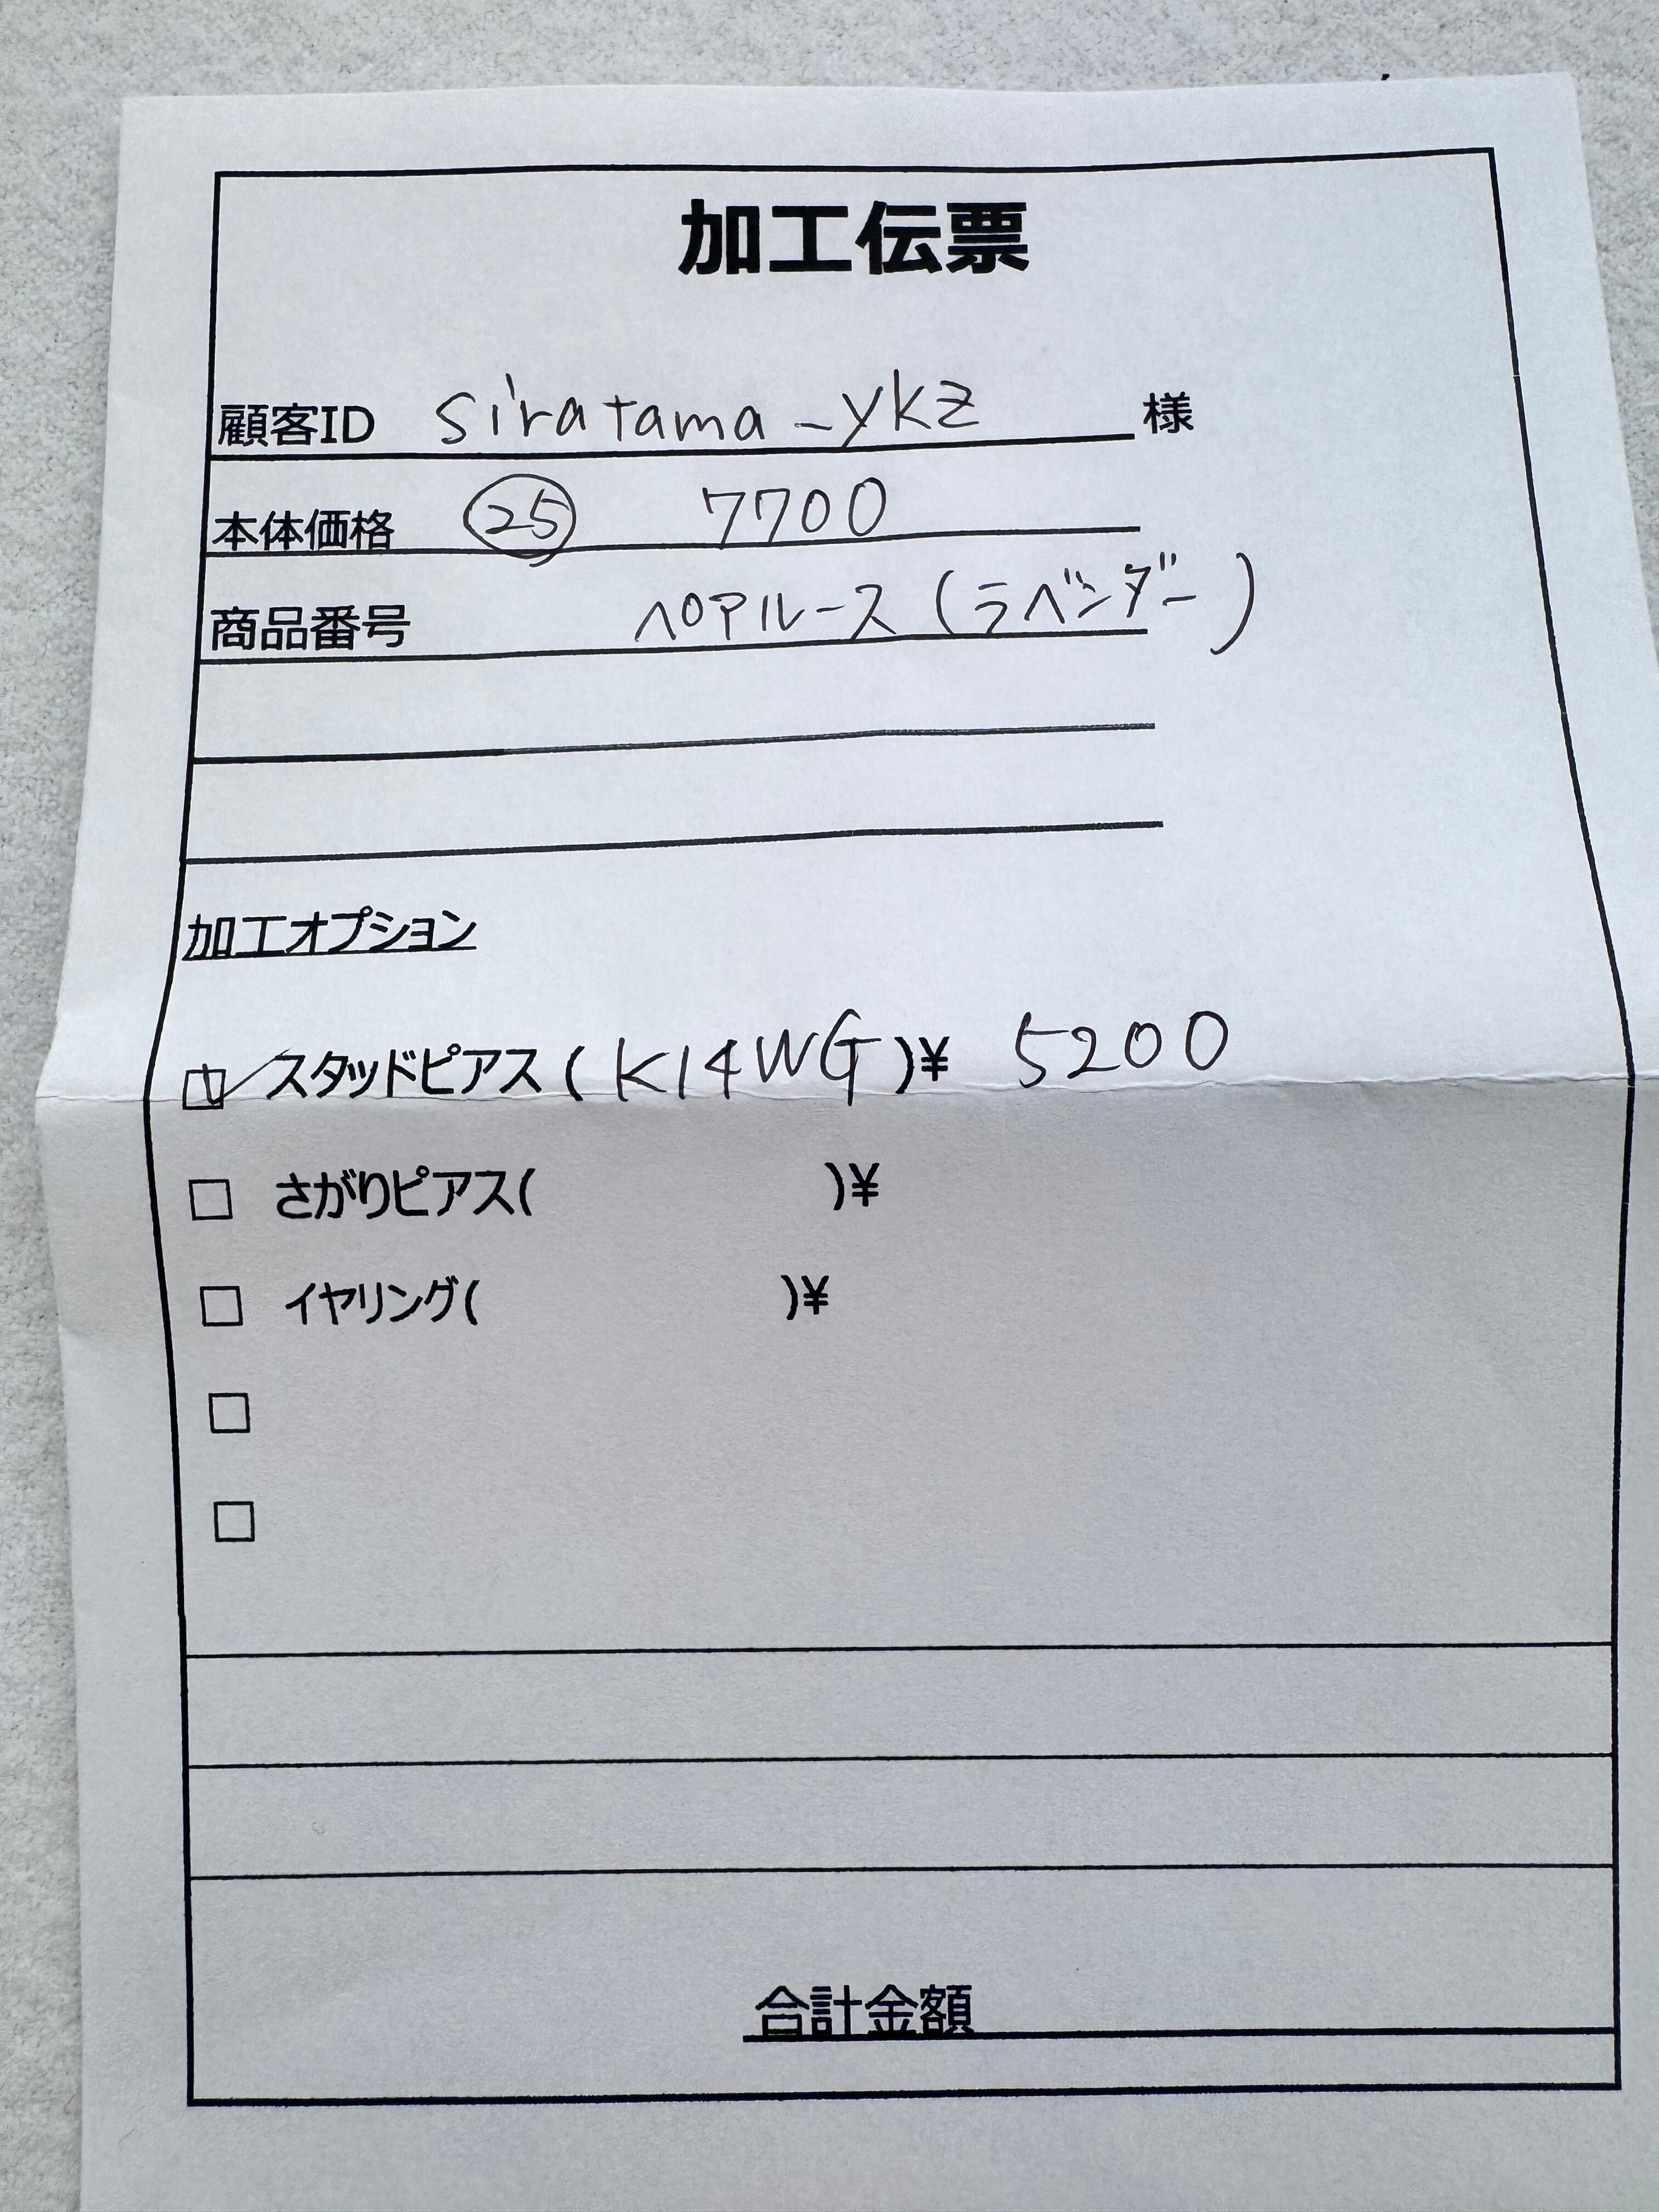 加工伝票
顧客ID siratama_ykz 様
本体価格 ㉕ 7700
商品番号 ペアルース(ラベンダー)
加工オプション
☑ スタッドピアス(K14WG)¥ 5200
□ さがりピアス( )¥
□ イヤリング( )¥
□
□
合計金額